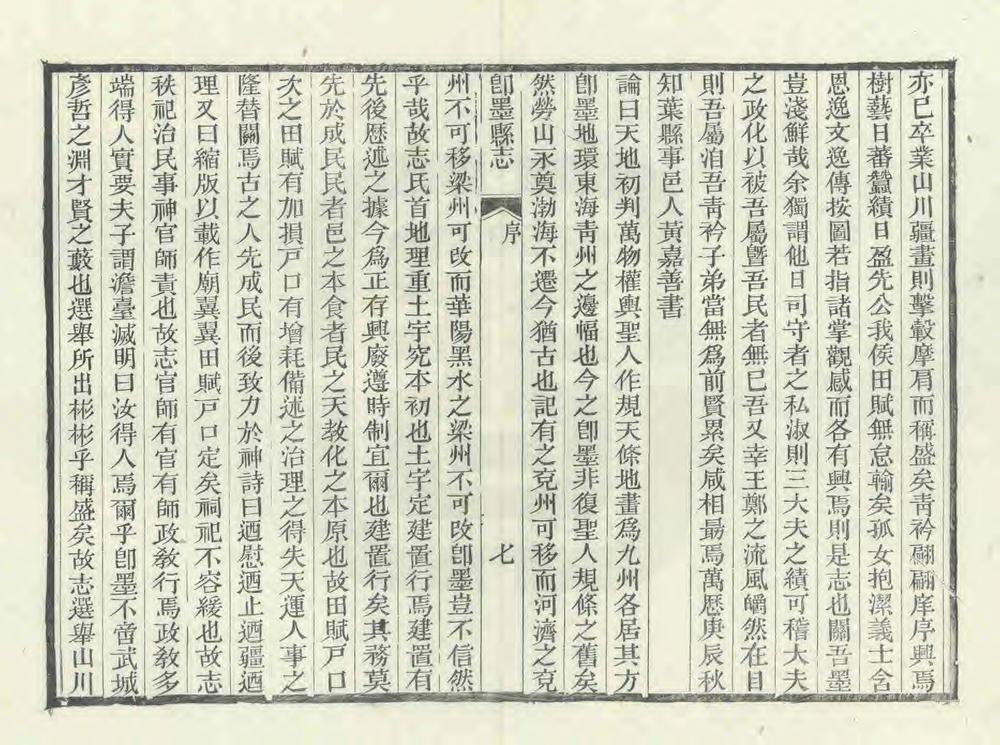 亦已卒業山川疆畫則擊轂摩肩而稱盛矣靑衿翩翩庠序興焉
樹藝日蕃蠶績日盈先公我侯田賦無怠輸矣孤女抱潔義士含
恩逸文逸傳按圖若指諸掌觀感而各有興焉則是志也關吾墨
豈淺鮮哉余獨謂他日司守者之私淑則三大夫之績可稽大夫
之政化以被吾屬曁吾民者無已吾又幸王鄭之流風皭然在目
則吾屬洎吾靑衿子弟當無爲前賢累矣咸相朂焉萬歷庚辰秋
知葉縣事邑人黃嘉善書
論曰天地初判萬物權輿聖人作規天條地畫爲九州各居其方
卽墨地環東海靑州之邊幅也今之卽墨非復聖人規條之舊矣
然勞山永奠渤海不遷今猶古也記有之兗州可移而河濟之兗
卽墨縣志
序
七
州不可移梁州可改而華陽黑水之梁州不可改卽墨豈不信然
乎哉故志氏首地理重土宇究本初也土宇定建置行焉建置有
先後歷述之據今爲正存興廢遵時制宜爾也建置行矣其務莫
先於成民民者邑之本食者民之天敎化之本原也故田賦戸口
次之田賦有加損戸口有增耗備述之治理之得失天運人事之
隆替關焉古之人先成民而後致力於神詩曰迺慰迺止迺疆迺
理又曰縮版以載作廟翼翼田賦戸口定矣祠祀不容緩也故志
秩祀治民事神官師責也故志官師有官有師政敎行焉政敎多
端得人實要夫子謂澹臺滅明曰汝得人焉爾乎卽墨不啻武城
彥哲之淵才賢之藪也選舉所出彬彬乎稱盛矣故志選舉山川